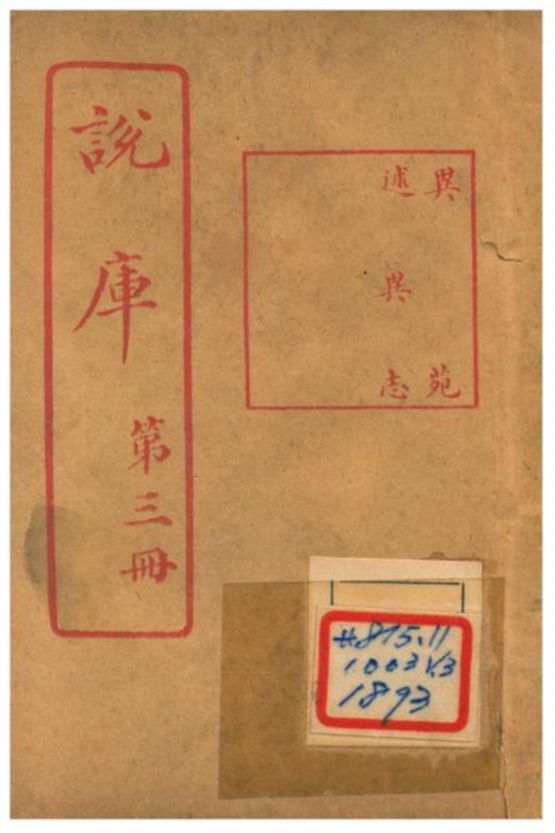 說庫 第三冊
異苑
述異志
#815.11
1003 V.3
1893